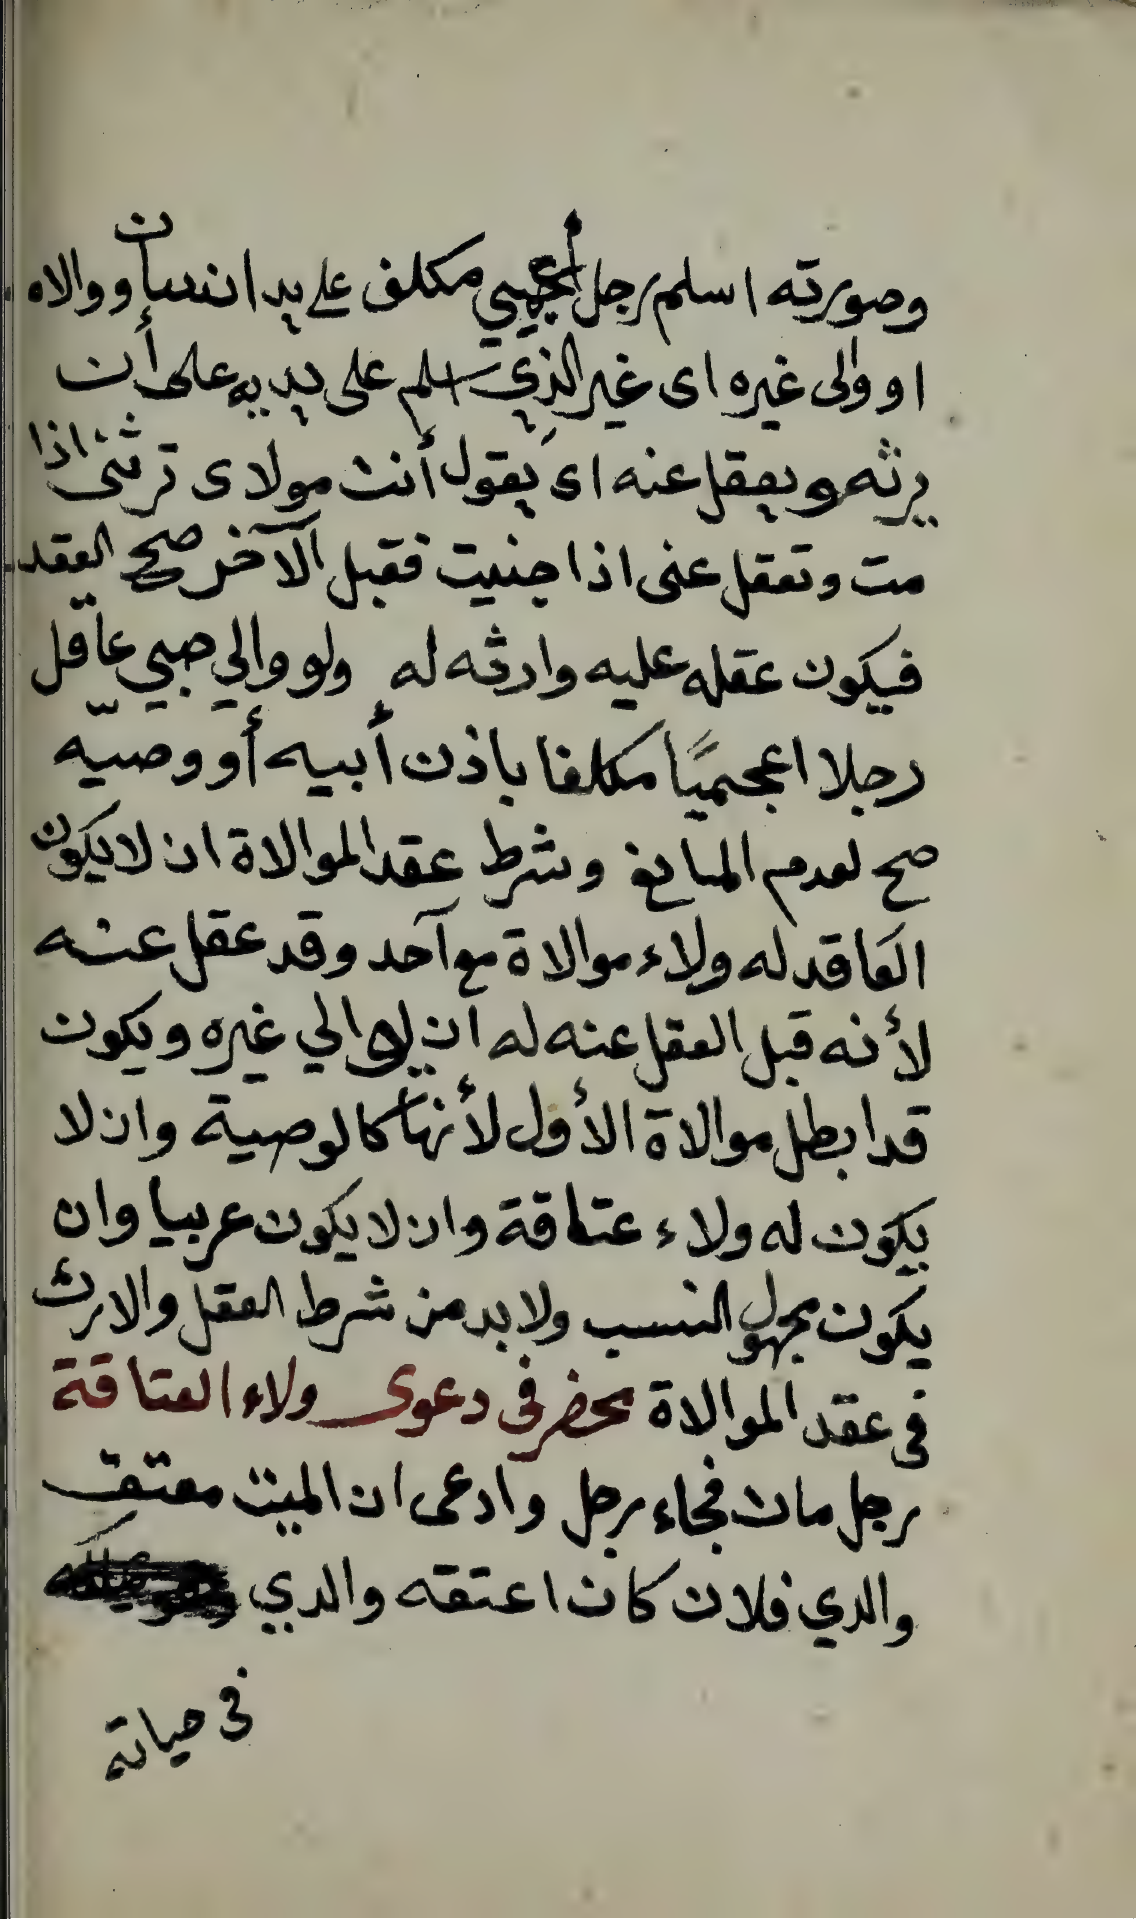 وصورته اسلم رجل أعجمي مكلف على يد انسان ووالاه
او والى غيره اى غير الذي اسلم على يديه على أن
يرثه ويعقل عنه اى يقول أنت مولاى ترثنى اذا
مت وتعقل عنى اذا جنيت فقبل الآخر صح العقد
فيكون عقله عليه وارثه له ولو والي صبي عاقل
رجلا اعجميًا مكلفا باذن أبيه أو وصيه
صح لعدم المانع وشرط عقد الموالاة ان لا يكون
العاقد له ولاء موالاة مع آحد وقد عقل عنه
لأنه قبل العقل عنه له ان الي غيره ويكون
قد ابطل موالاة الأول لأنها كالوصية وان لا
يكون له ولاء عتاقة وان لا يكون عربيا وان
يكون مجهول النسب ولا بد من شرط العقل والارث
فى عقد الموالاة محضر فى دعوى ولاء العتاقة
رجل مات فجاء رجل وادعى ان الميت معتق
والدي فلان كان اعتقه والدي
فى حياته